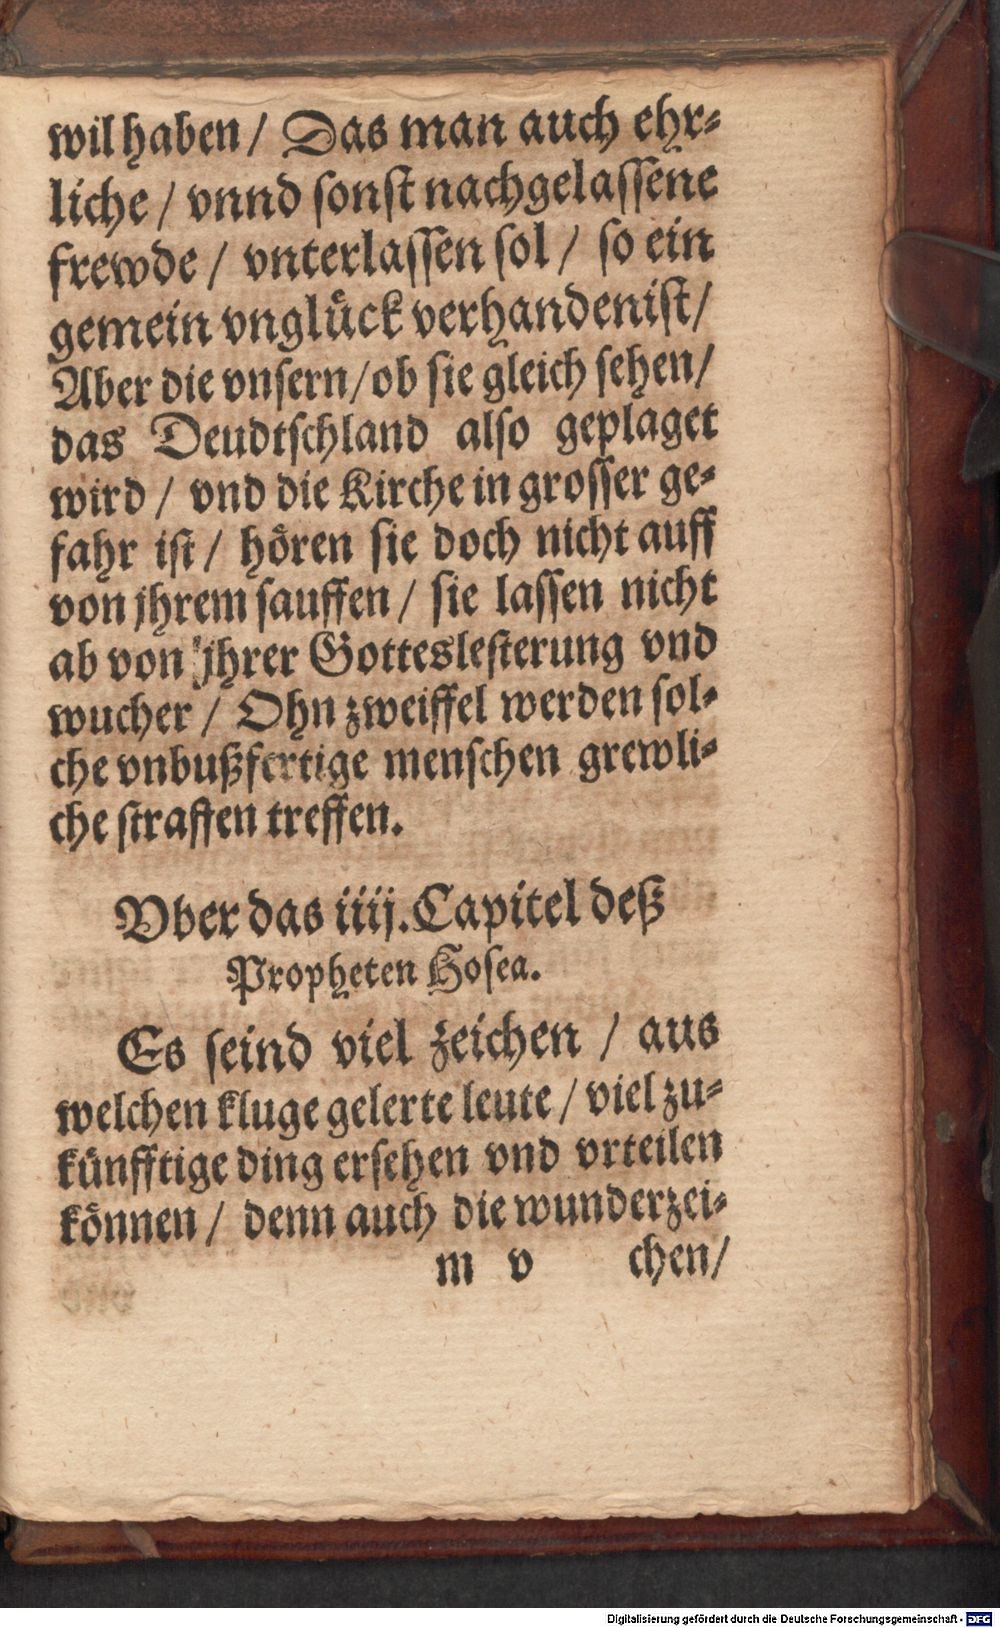 wil haben / Das man auch ehr⸗
liche / vnnd sonst nachgelassene
frewde / vnterlassen sol / so ein
gemein vnglück verhanden ist /
Aber die vnsern / ob sie gleich sehen /
das Deudtschland also geplaget
wird / vnd die Kirche in grosser ge⸗
fahr ist / hören sie doch nicht auff
von jhrem sauffen / sie lassen nicht
ab von jhrer Gotteslesterung vnd
wucher / Ohn zweiffel werden sol⸗
che vnbußfertige menschen grewli⸗
che straffen treffen.
Vber das iiij. Capitel deß
Propheten Hosea.
Es seind viel zeichen / aus
welchen kluge gelerte leute / viel zu⸗
künfftige ding ersehen vnd vrteilen
können / denn auch die wunderzei⸗
m v chen /
Digitalisierung gefördert durch die Deutsche Forschungsgemeinschaft - DFG